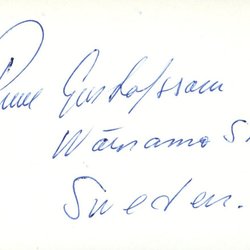 Rune Gustafsson
Värnamo S
Sweden.